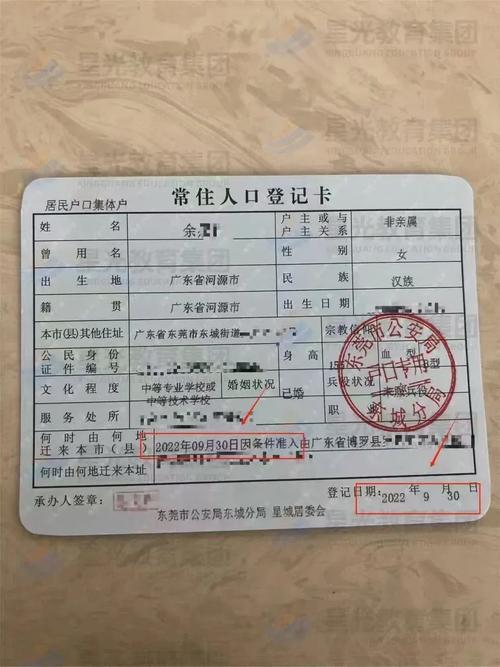 星光教育集团
XINGGUANG EDUCATION GROUP
常住人口登记卡
居民户口集体户
姓名 余 户主或与户主关系 非亲属
曾用名 性别 女
出生地 广东省河源市 民族 汉族
籍贯 广东省河源市 出生日期
本市(县)其他住址 广东省东莞市东城街道 宗教信仰
公民身份证件编号 身高 15 血型 B型
文化程度 中等专业学校或中等技术学校 婚姻状况 已婚 兵役状况 未服兵役
服务处所 职业
何时由何地迁来本市(县) 2022年09月30日因条件准入由广东省博罗县
何时由何地迁来本址
承办人签章: 登记日期: 2022 年 9 月 30 日
东莞市公安局东城分局 星城居委会
东莞市公安局
户口专用
东城分局